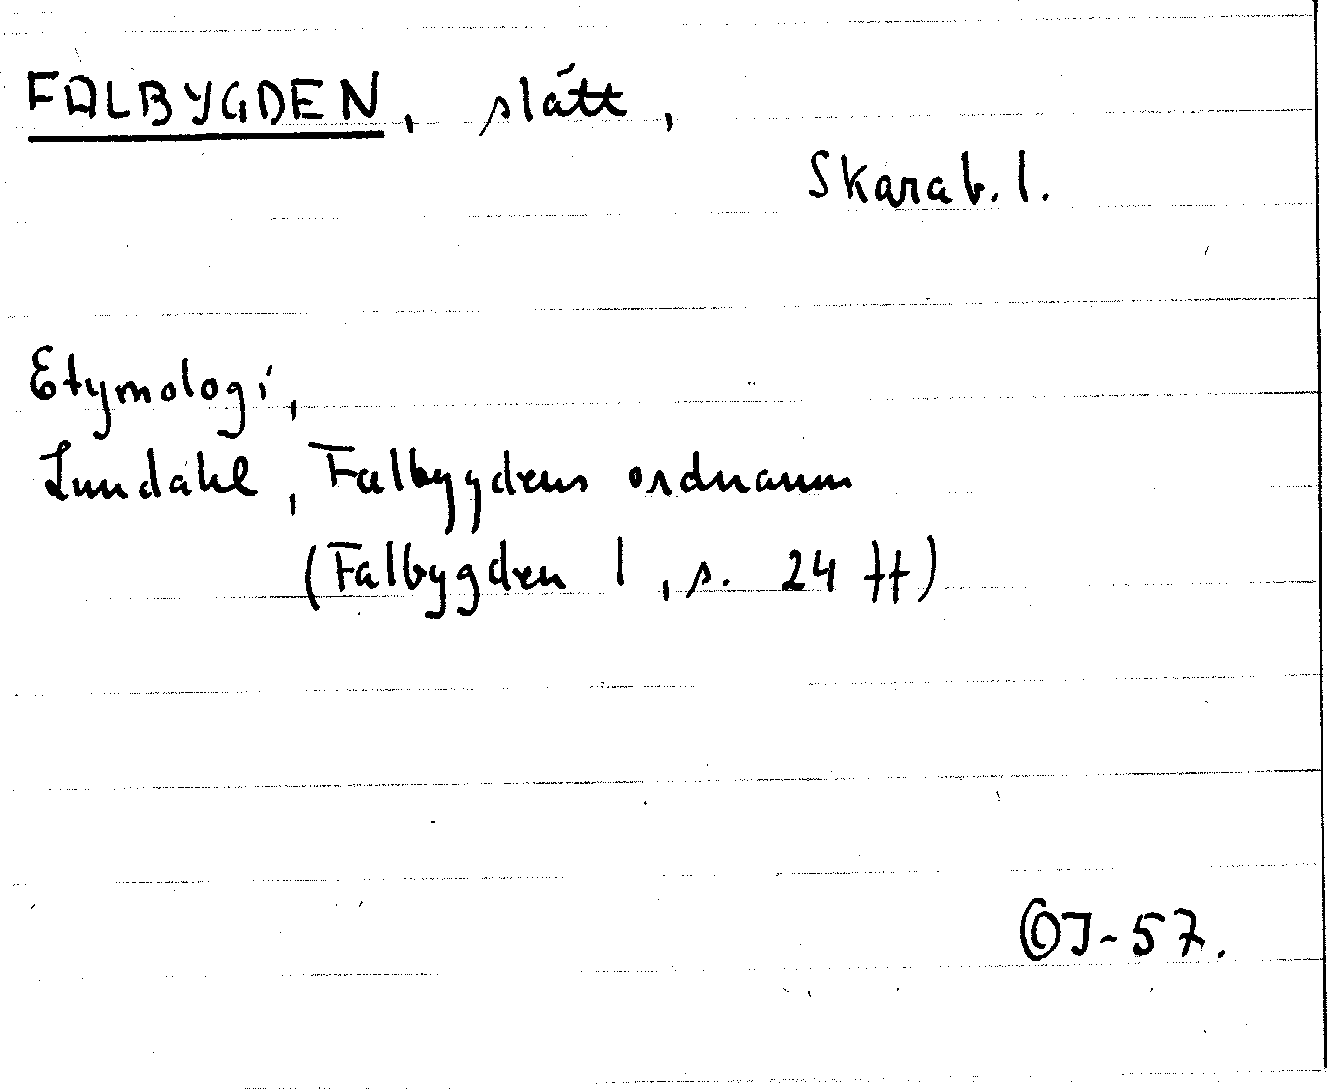 FALBYGDEN, slätt,
Skarab. l.
Etymologi,
Lundahl, Falbygdens ordnamn
(Falbygden 1, s. 24 ff)
OJ-57.